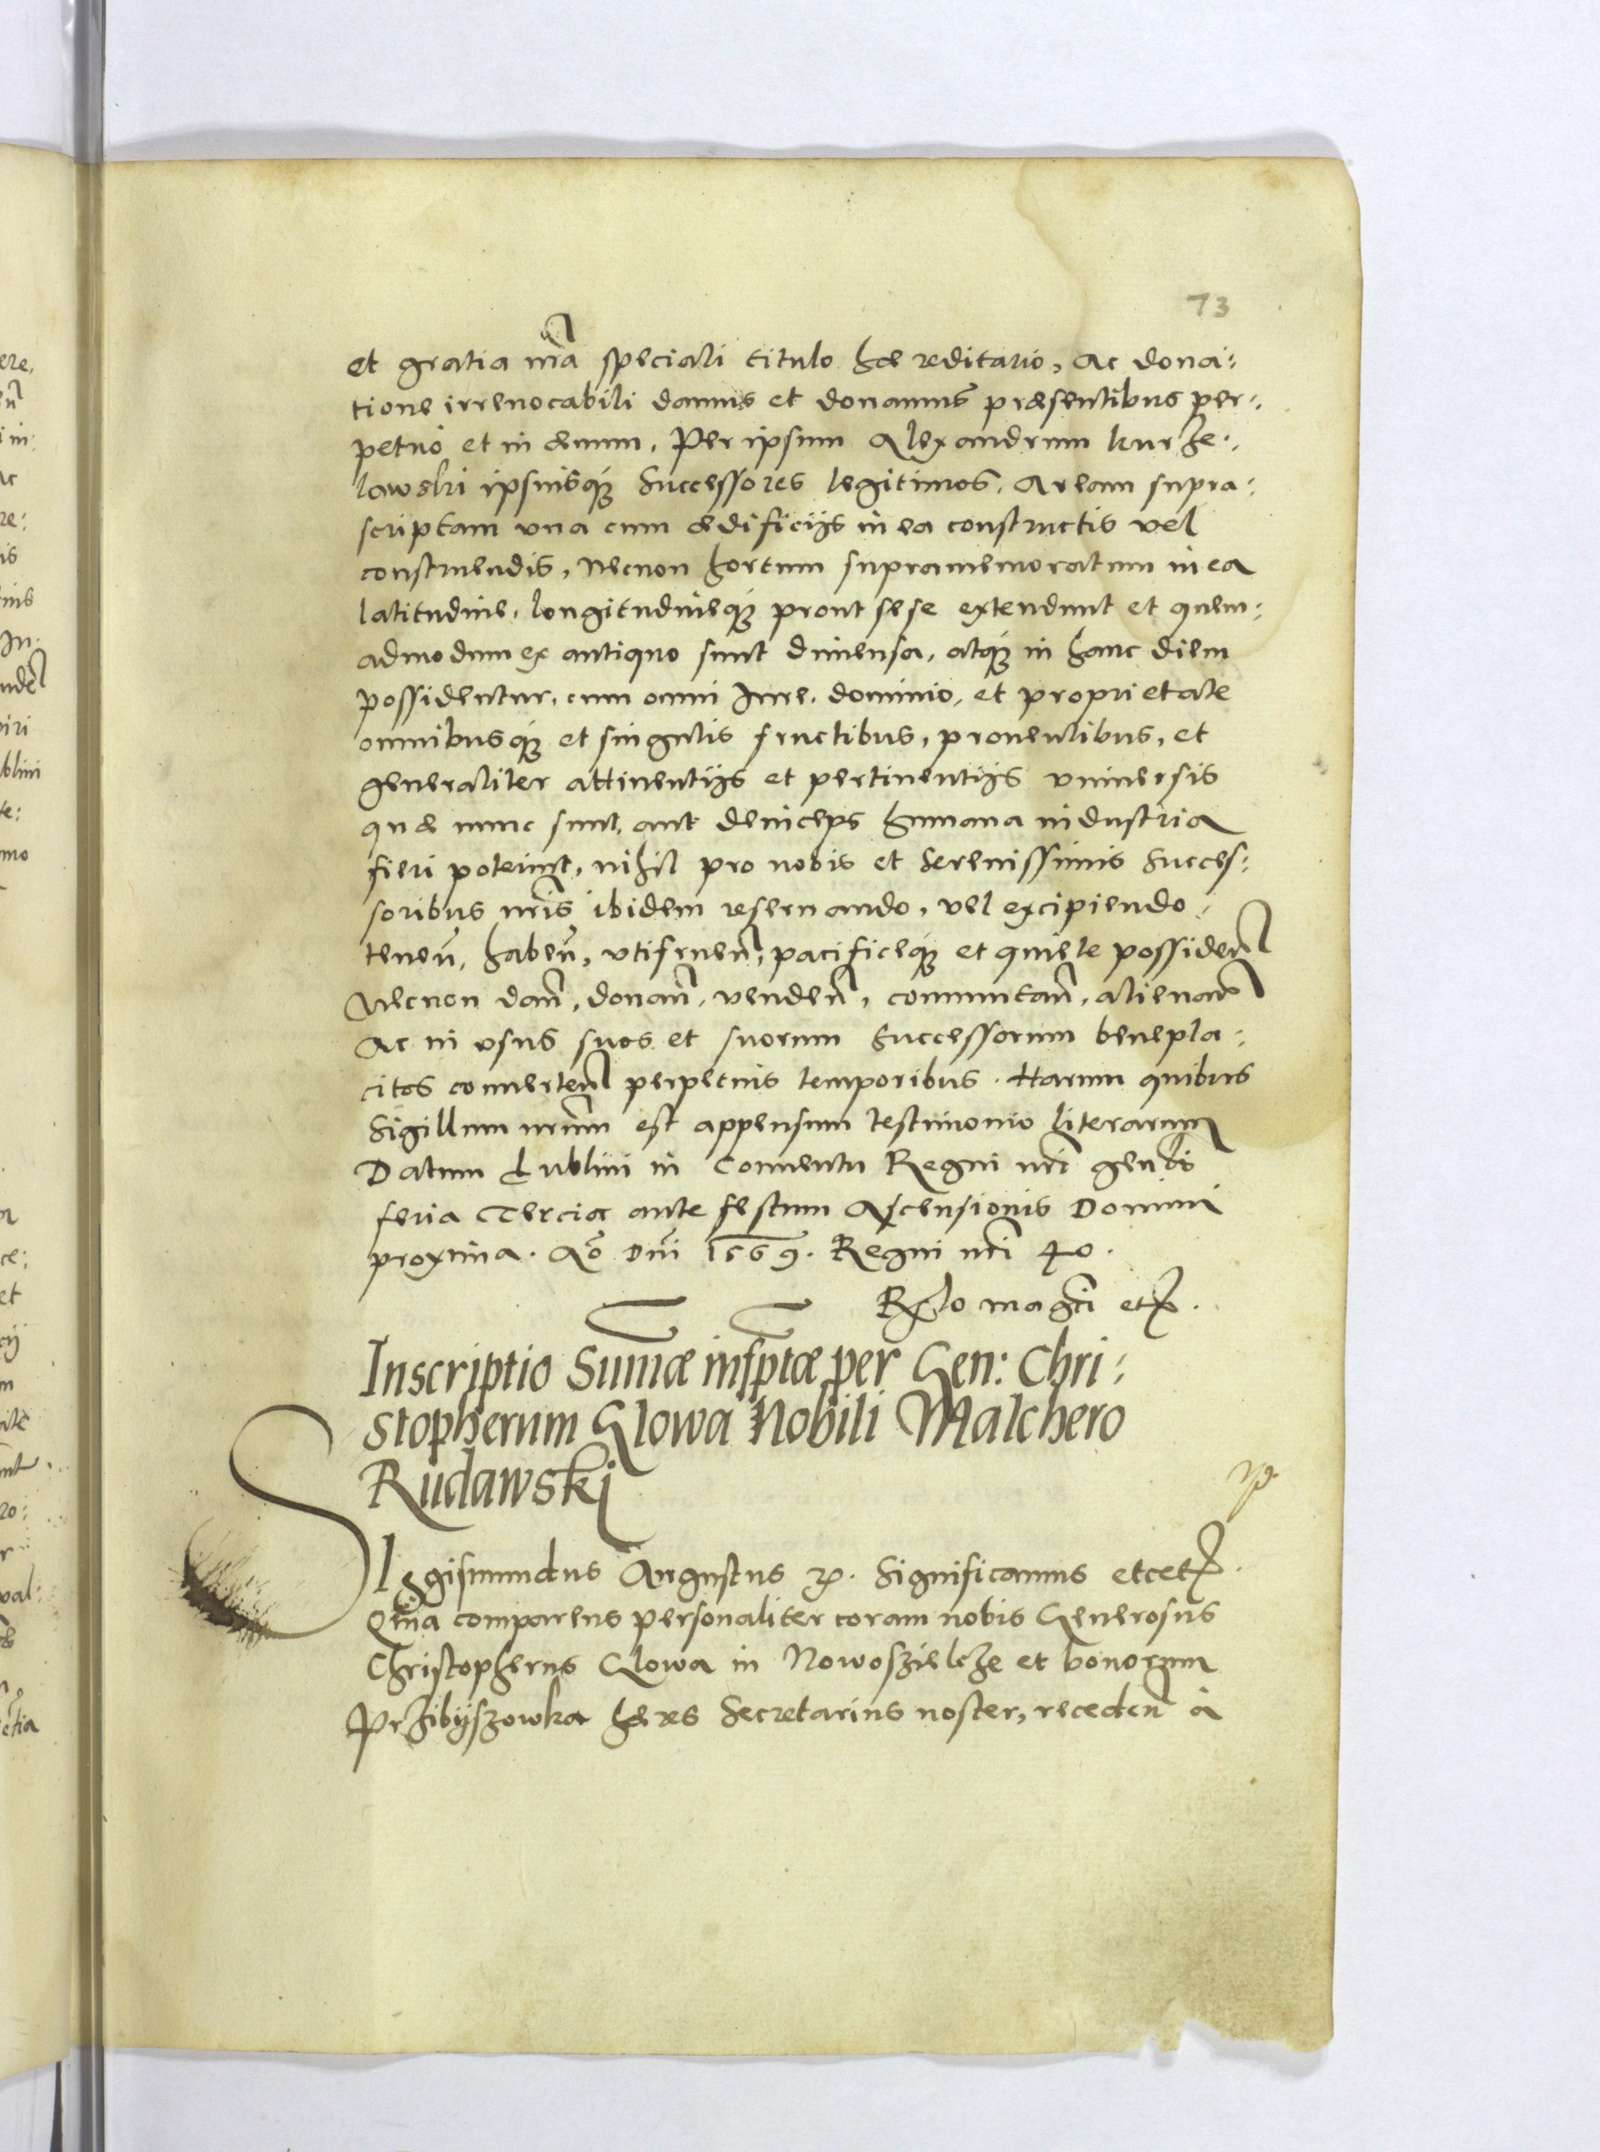 73
et gratia nr̃a speciali titulo hæreditario, ac dona:
tione irreuocabili damus et donamus præsentibus per:
petuò et in æuum. Per ipsum Alexandrum Kurze:
lawski ipsiusq́ue Successores legitimos. Aream supra:
scriptam vna cum ædificijs in ea constructis vel
construendis, Necnon hortum supramemoratum in ea
latitudine, longitudineq́ue prout sese extendunt et quem:
admodum ex antiquo sunt dimensa, atq́ue in hanc diem
possidentur, cum omni Iure, dominio, et proprietate
omnibusq́ue et singulis fructibus, prouentibus, et
generaliter attinentijs et pertinentijs vniuersis
quæ nunc sunt, aut deinceps humana industria
fieri poterint, nihil pro nobis et Serenissimis Succes:
soribus nr̃is ibidem reseruando, vel excipiendo.
teneñ, habeñ, vtifrueñ, pacificeq́ue et quiete possideñ
Necnon dañ, donañ, vendeñ, commutañ, alienañ
Ac in vsus suos et suorum Successorum benepla:
citos conuerteñ perpetuis temporibus. Harum quibus
Sigillum nr̃um est appensum testimonio literarum
Datum Lublini in Conuentu Regni nr̃i gen̄li
feria Tercia ante festum Ascensionis Domini
proxima. Aõ Dñi 1569. Regni nr̃i 40.
Rel̃o magc̃i etc̃.
Inscriptio Sum̃æ infrãptæ per Gen: Chri:
stopherum Glowa Nobili Malchero
Rudawski
Sigismundus Augustus etc. Significamus etcet.
Quĩa comparens personaliter coram nobis Generosus
Christopherus Glowa in Nowoszielcze et bonorum
Przibijszowka hæres Secretarius noster, recedeñ à